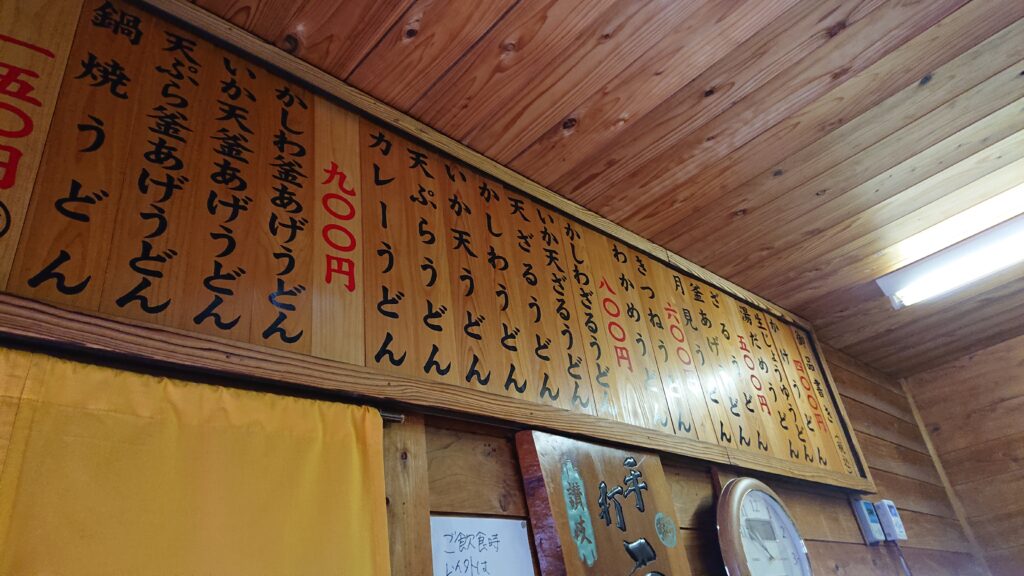 御品書
四〇〇円
かけうどん
五〇〇円
湯だめうどん
ざるうどん
釜あげうどん
六〇〇円
月見うどん
きつねうどん
わかめうどん
八〇〇円
かしわざるうどん
いか天ざるうどん
天ざるうどん
かしわうどん
いか天うどん
天ぷらうどん
カレーうどん
九〇〇円
かしわ釜あげうどん
いか天釜あげうどん
天ぷら釜あげうどん
鍋焼うどん
一五〇円
讃岐
手打
ご飲食時